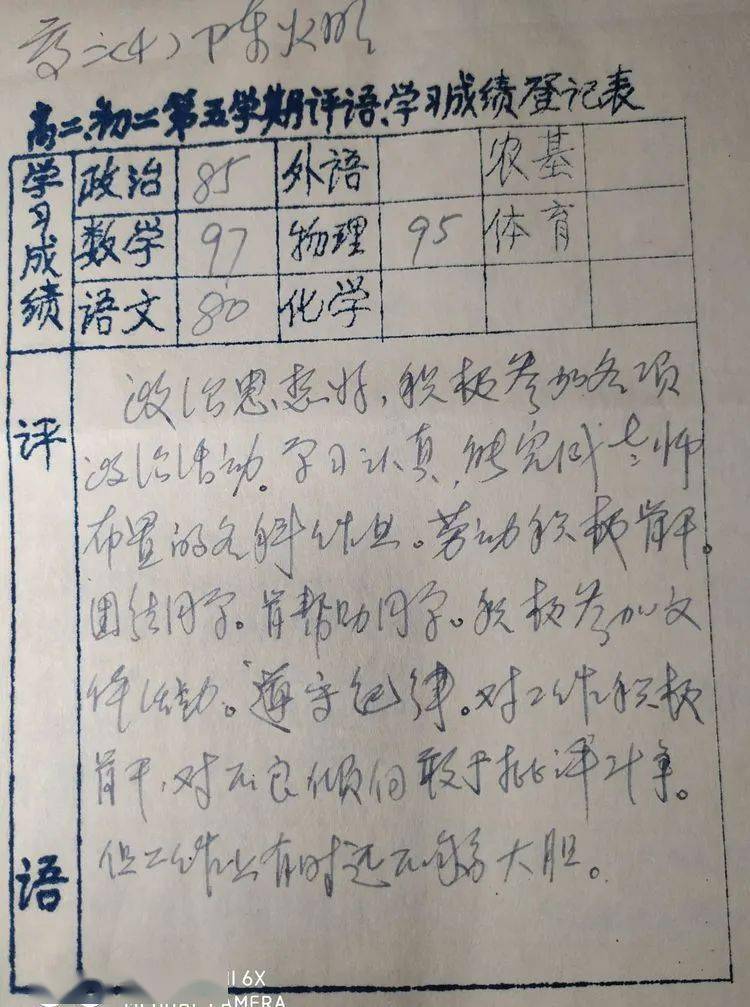 高二(4) 陈火明
高二、初二第五学期评语、学习成绩登记表
学习成绩 政治 85 外语 农基
数学 97 物理 95 体育
语文 80 化学
评语
政治思想好，积极参加各项
政治活动。学习认真，能完成老师
布置的各科作业。劳动积极肯干。
团结同学。肯帮助同学。积极参加文
体活动。遵守纪律。对工作积极
肯干，对不良倾向敢于批评斗争。
但工作上有时还不够大胆。
II 6X
CAMERA